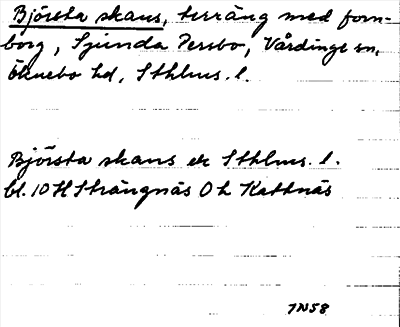 Björsta skans, terräng med forn-
borg, Sjunda Persbo, Vårdinge sn,
Öknebo hd, Sthlms. l.
Björsta skans ek Sthlms. l.
bl. 10 H Strängnäs O h Kattnäs
JN58